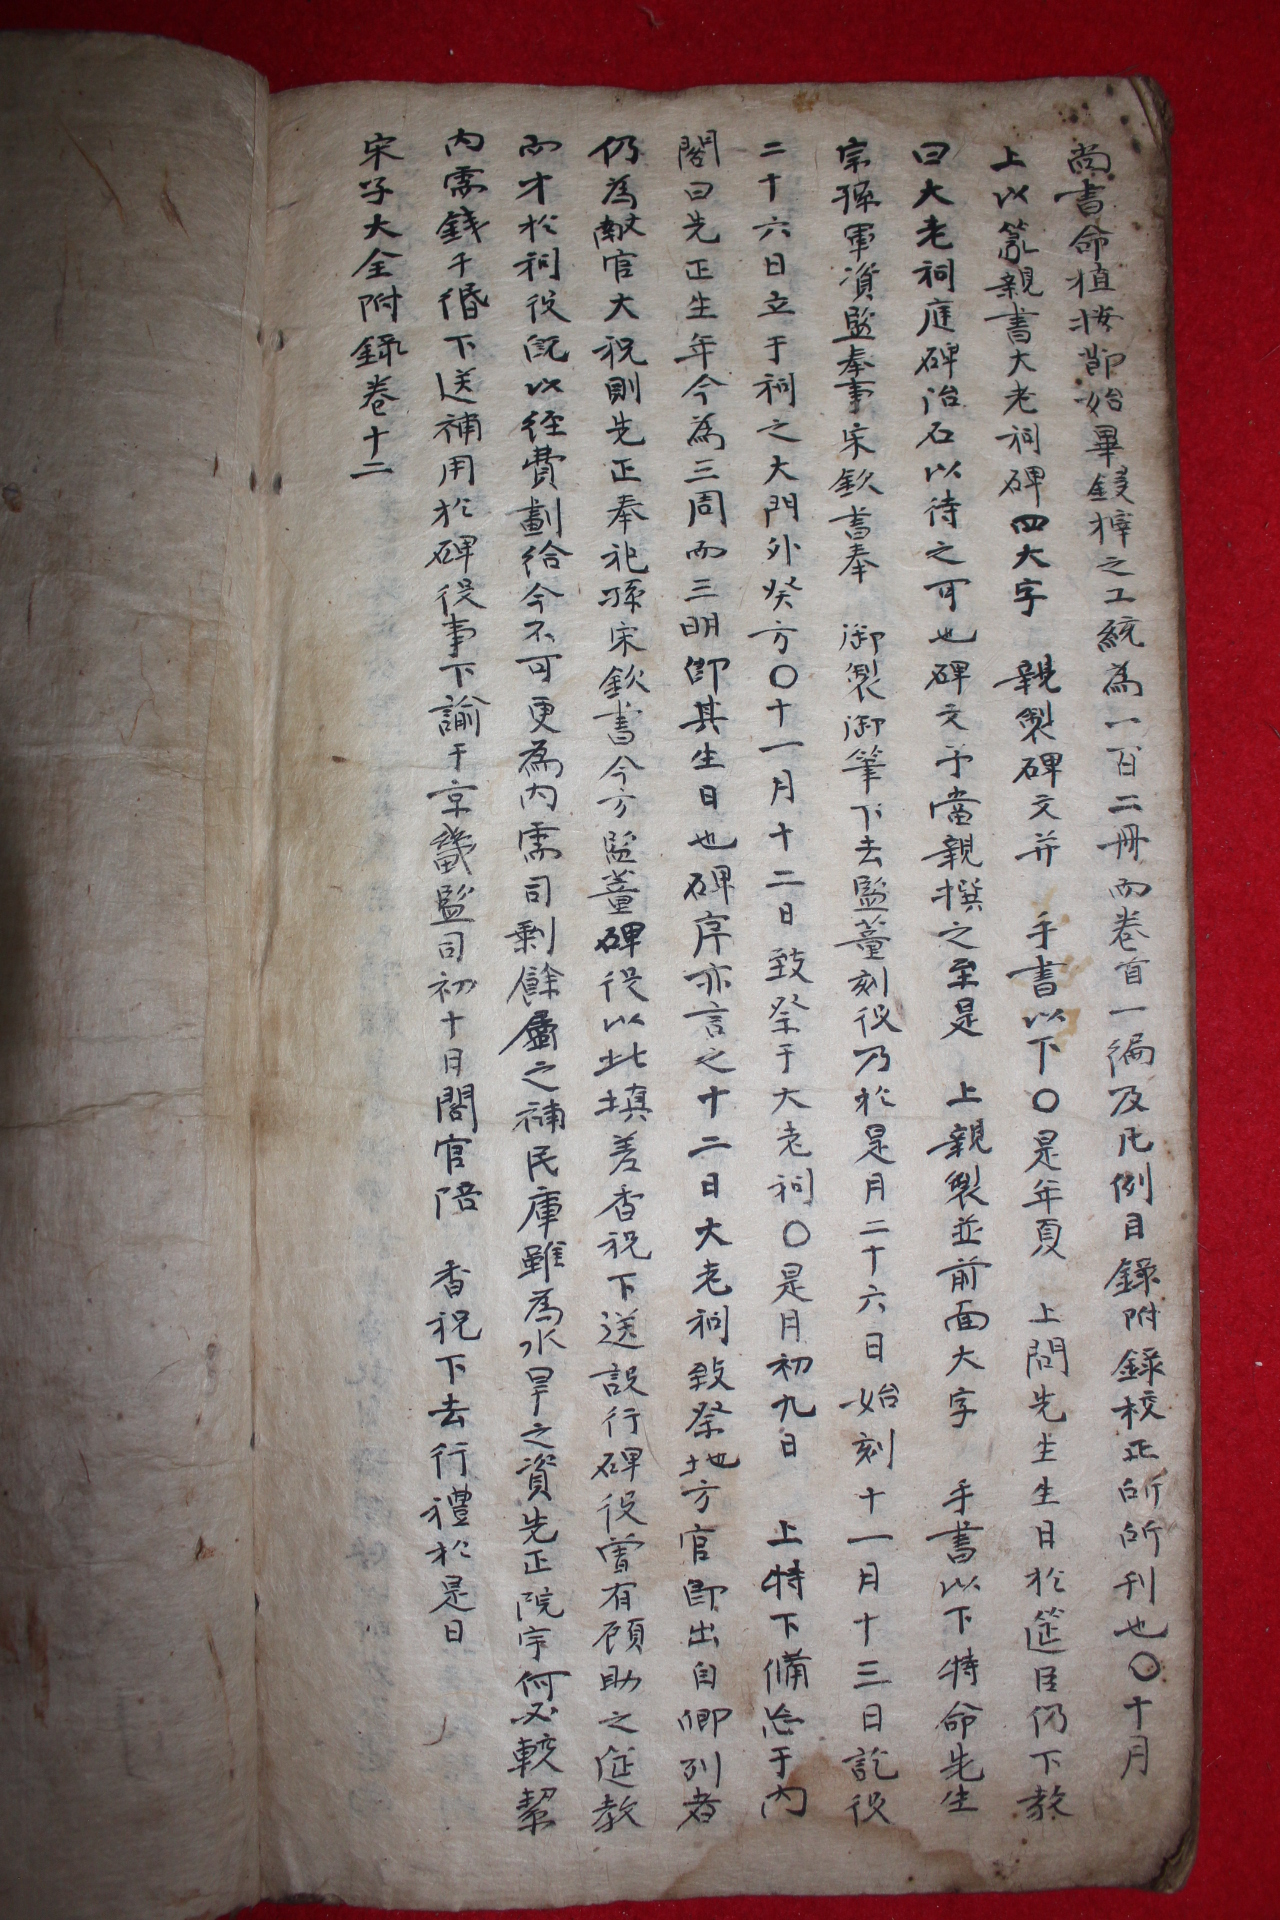 尚書命植按節始畢鋟梓之工統為一百二冊而卷首一編及凡例目錄附錄校正所所刊也〇十月
上以篆親書大老祠碑四大字 親製碑文并 手書以下〇是年夏 上問先生生日於筵臣仍下教
曰大老祠庭碑治石以待之可也碑文予當親撰之至是 上親製並前面大字 手書以下特命先生
宗孫軍資監奉事宋欽書奉 御製御筆下去監董刻役乃於是月二十六日始刻十一月十三日訖役
二十六日立于祠之大門外癸方〇十一月十二日致祭于大老祠〇是月初九日 上特下備忘于內
閣曰先正生年今為三周而三明卽其生日也碑序亦言之十二日大老祠致祭地方官卽出自卿列者
仍為獻官大祝則先正奉祀孫宋欽書今方監董碑役以此填差香祝下送設行碑役嘗有顧助之筵教
而才於祠役旣以経費劃給今不可更為內需司剩餘屬之補民庫雖為水旱之資先正院宇何必較挈
內需錢千緡下送補用於碑役事下諭于京畿監司初十日閣官陪 香祝下去行禮於是日
宋子大全附錄卷十二